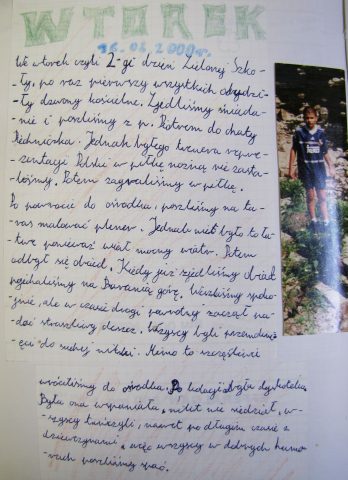 WTOREK
We wtorek czyli 2-gi dzień Zielonej Szko-
-ły, po raz pierwszy wszystkich obudzi-
-ły dzwony kościelne. Zjedliśmy śniada-
-nie i poszliśmy z p. Piotrem do chaty
Piechniczka. Jednak byłego trenera repre-
-zentacji Polski w piłkę nożną nie zasta-
-liśmy. Potem zagraliśmy w piłkę.
Po powrocie do ośrodka, poszliśmy na ta-
-ras malować plener. Jednak nie było to ła-
-twe ponieważ wiał mocny wiatr. Potem
odbył się obiad. Kiedy już zjedliśmy obiad
pojechaliśmy na Baranią górę. Weszliśmy spoko-
-jnie, ale w czasie drogi powrotnej zaczął pa-
-dać straszliwy deszcz. Wszyscy byli przemoknię-
-ęci do suchej nitki. Mimo to szczęśliwie
wróciliśmy do ośrodka. Po kolacji była dyskoteka.
Była ona wspaniała, nikt nie siedział, w-
-szyscy tańczyli, nawet po długim czasie z
dziewczynami, więc wszyscy w dobrych humo-
-rach poszliśmy spać.